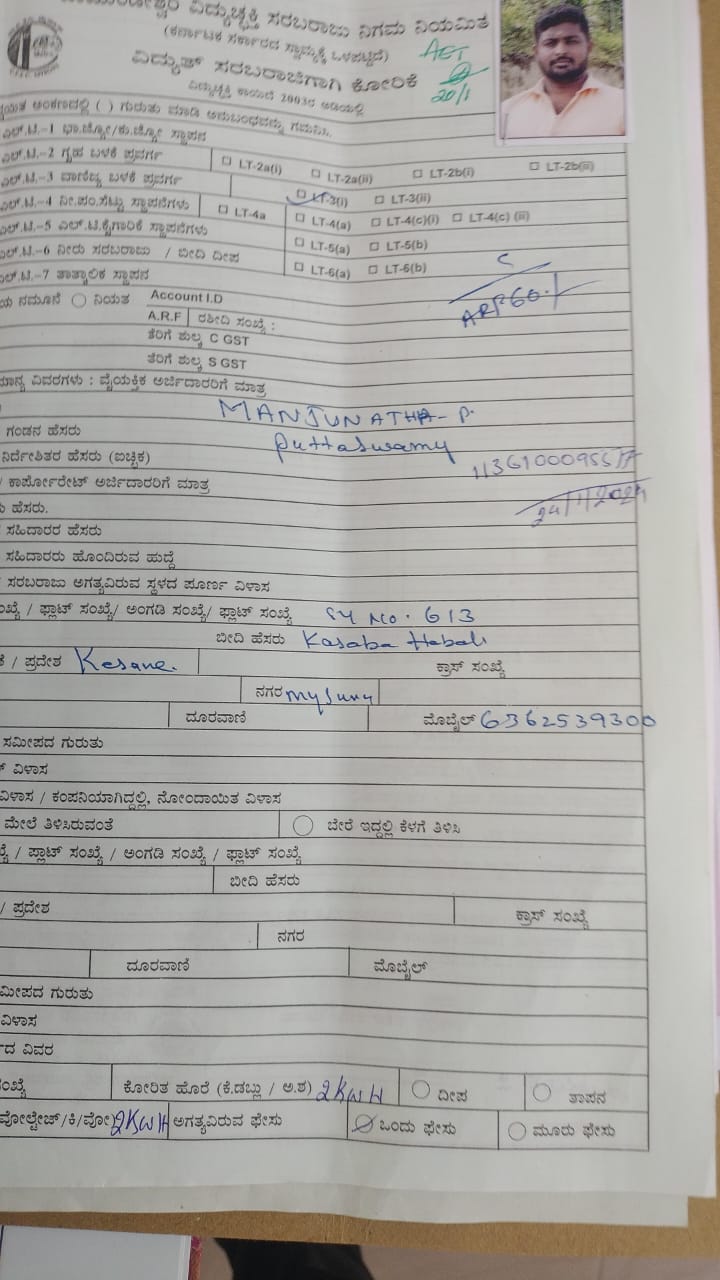 ವಿದ್ಯುಚ್ಛಕ್ತಿ ಸರಬರಾಜು ನಿಗಮ ನಿಯಮಿತ
(ಕರ್ನಾಟಕ ಸರ್ಕಾರದ ಸ್ವಾಮ್ಯಕ್ಕೆ ಒಳಪಟ್ಟಿದೆ)
AET
ವಿದ್ಯುತ್ ಸರಬರಾಜಿಗಾಗಿ ಕೋರಿಕೆ
20/1
ವಿದ್ಯುಚ್ಛಕ್ತಿ ಕಾಯಿದೆ 2003ರ ಅಡಿಯಲ್ಲಿ
ಅಂಕಣದಲ್ಲಿ ( ) ಗುರುತು ಮಾಡಿ ಅನುಬಂಧವನ್ನು ಗಮನಿಸಿ.
ಎಲ್.ಟಿ.-1 ಭಾ.ಜ್ಯೋ/ಕು.ಜ್ಯೋ ಸ್ಥಾಪನ
ಎಲ್.ಟಿ.-2 ಗೃಹ ಬಳಕೆ ಪ್ರವರ್ಗ ☐ LT-2a(i) ☐ LT-2a(ii) ☐ LT-2b(i) ☐ LT-2b(ii)
ಎಲ್.ಟಿ.-3 ವಾಣಿಜ್ಯ ಬಳಕೆ ಪ್ರವರ್ಗ ☐ LT-3(i) ☐ LT-3(ii)
ಎಲ್.ಟಿ.-4 ನೀ.ಪಂ.ಸೆಟ್ಟು ಸ್ಥಾಪನೆಗಳು ☐ LT-4a ☐ LT-4(a) ☐ LT-4(c)(i) ☐ LT-4(c) (ii)
ಎಲ್.ಟಿ.-5 ಎಲ್.ಟಿ.ಕೈಗಾರಿಕೆ ಸ್ಥಾಪನೆಗಳು ☐ LT-5(a) ☐ LT-5(b)
ಎಲ್.ಟಿ.-6 ನೀರು ಸರಬರಾಜು / ಬೀದಿ ದೀಪ ☐ LT-6(a) ☐ LT-6(b)
ಎಲ್.ಟಿ.-7 ತಾತ್ಕಾಲಿಕ ಸ್ಥಾಪನ
ನಮೂನೆ ನಿಯತ Account I.D
A.R.F ರಶೀದಿ ಸಂಖ್ಯೆ :
ತೆರಿಗೆ ಶುಲ್ಕ C GST
ತೆರಿಗೆ ಶುಲ್ಕ S GST
ವಿವರಗಳು : ವೈಯಕ್ತಿಕ ಅರ್ಜಿದಾರರಿಗೆ ಮಾತ್ರ
MANJUNATHA-P.
ಗಂಡನ ಹೆಸರು Puttaswamy
ನಿರ್ದೇಶಿತರ ಹೆಸರು (ಐಚ್ಛಿಕ)
/ ಕಾರ್ಪೋರೇಟ್ ಅರ್ಜಿದಾರರಿಗೆ ಮಾತ್ರ
24/1/2024
ಹೆಸರು.
ಸಹಿದಾರರ ಹೆಸರು
ಸಹಿದಾರರು ಹೊಂದಿರುವ ಹುದ್ದೆ
ಸರಬರಾಜು ಅಗತ್ಯವಿರುವ ಸ್ಥಳದ ಪೂರ್ಣ ವಿಳಾಸ
/ ಪ್ಲಾಟ್ ಸಂಖ್ಯೆ/ ಅಂಗಡಿ ಸಂಖ್ಯೆ/ ಫ್ಲಾಟ್ ಸಂಖ್ಯೆ SY No. 613
ಬೀದಿ ಹೆಸರು Kasaba Hobali
/ ಪ್ರದೇಶ Kesare. ಕ್ರಾಸ್ ಸಂಖ್ಯೆ
ನಗರ mysuru
ದೂರವಾಣಿ ಮೊಬೈಲ್ 6362539300
ಸಮೀಪದ ಗುರುತು
ವಿಳಾಸ
ವಿಳಾಸ / ಕಂಪನಿಯಾಗಿದ್ದಲ್ಲಿ, ನೋಂದಾಯಿತ ವಿಳಾಸ
ಮೇಲೆ ತಿಳಿಸಿರುವಂತೆ ಬೇರೆ ಇದ್ದಲ್ಲಿ ಕೆಳಗೆ ತಿಳಿಸಿ
/ ಪ್ಲಾಟ್ ಸಂಖ್ಯೆ / ಅಂಗಡಿ ಸಂಖ್ಯೆ / ಫ್ಲಾಟ್ ಸಂಖ್ಯೆ
ಬೀದಿ ಹೆಸರು
/ ಪ್ರದೇಶ ಕ್ರಾಸ್ ಸಂಖ್ಯೆ
ನಗರ
ದೂರವಾಣಿ ಮೊಬೈಲ್
ಗುರುತು
ವಿಳಾಸ
ವಿವರ
ಕೋರಿತ ಹೊರೆ (ಕೆ.ಡಬ್ಲು / ಅ.ಶ) 2KWH ದೀಪ ತಾಪನ
ವೋಲ್ಟೇಜ್/ಕಿ/ವೋ 2KWH ಅಗತ್ಯವಿರುವ ಫೇಸು ಒಂದು ಫೇಸು ಮೂರು ಫೇಸು